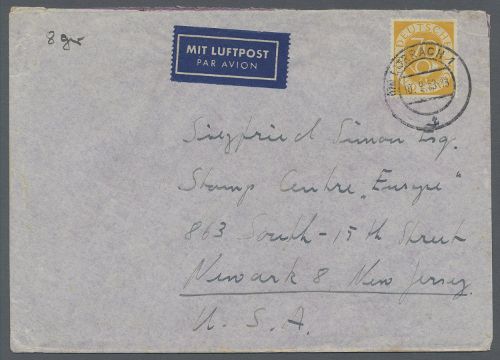 8 gr
MIT LUFTPOST
PAR AVION
DEUTSCHE
LÖRRACH 1
Siegfried Simon Esq.
Stamp Centre „Europe"
863 South - 15 th Street
Newark 8 New Jersey
U. S. A.